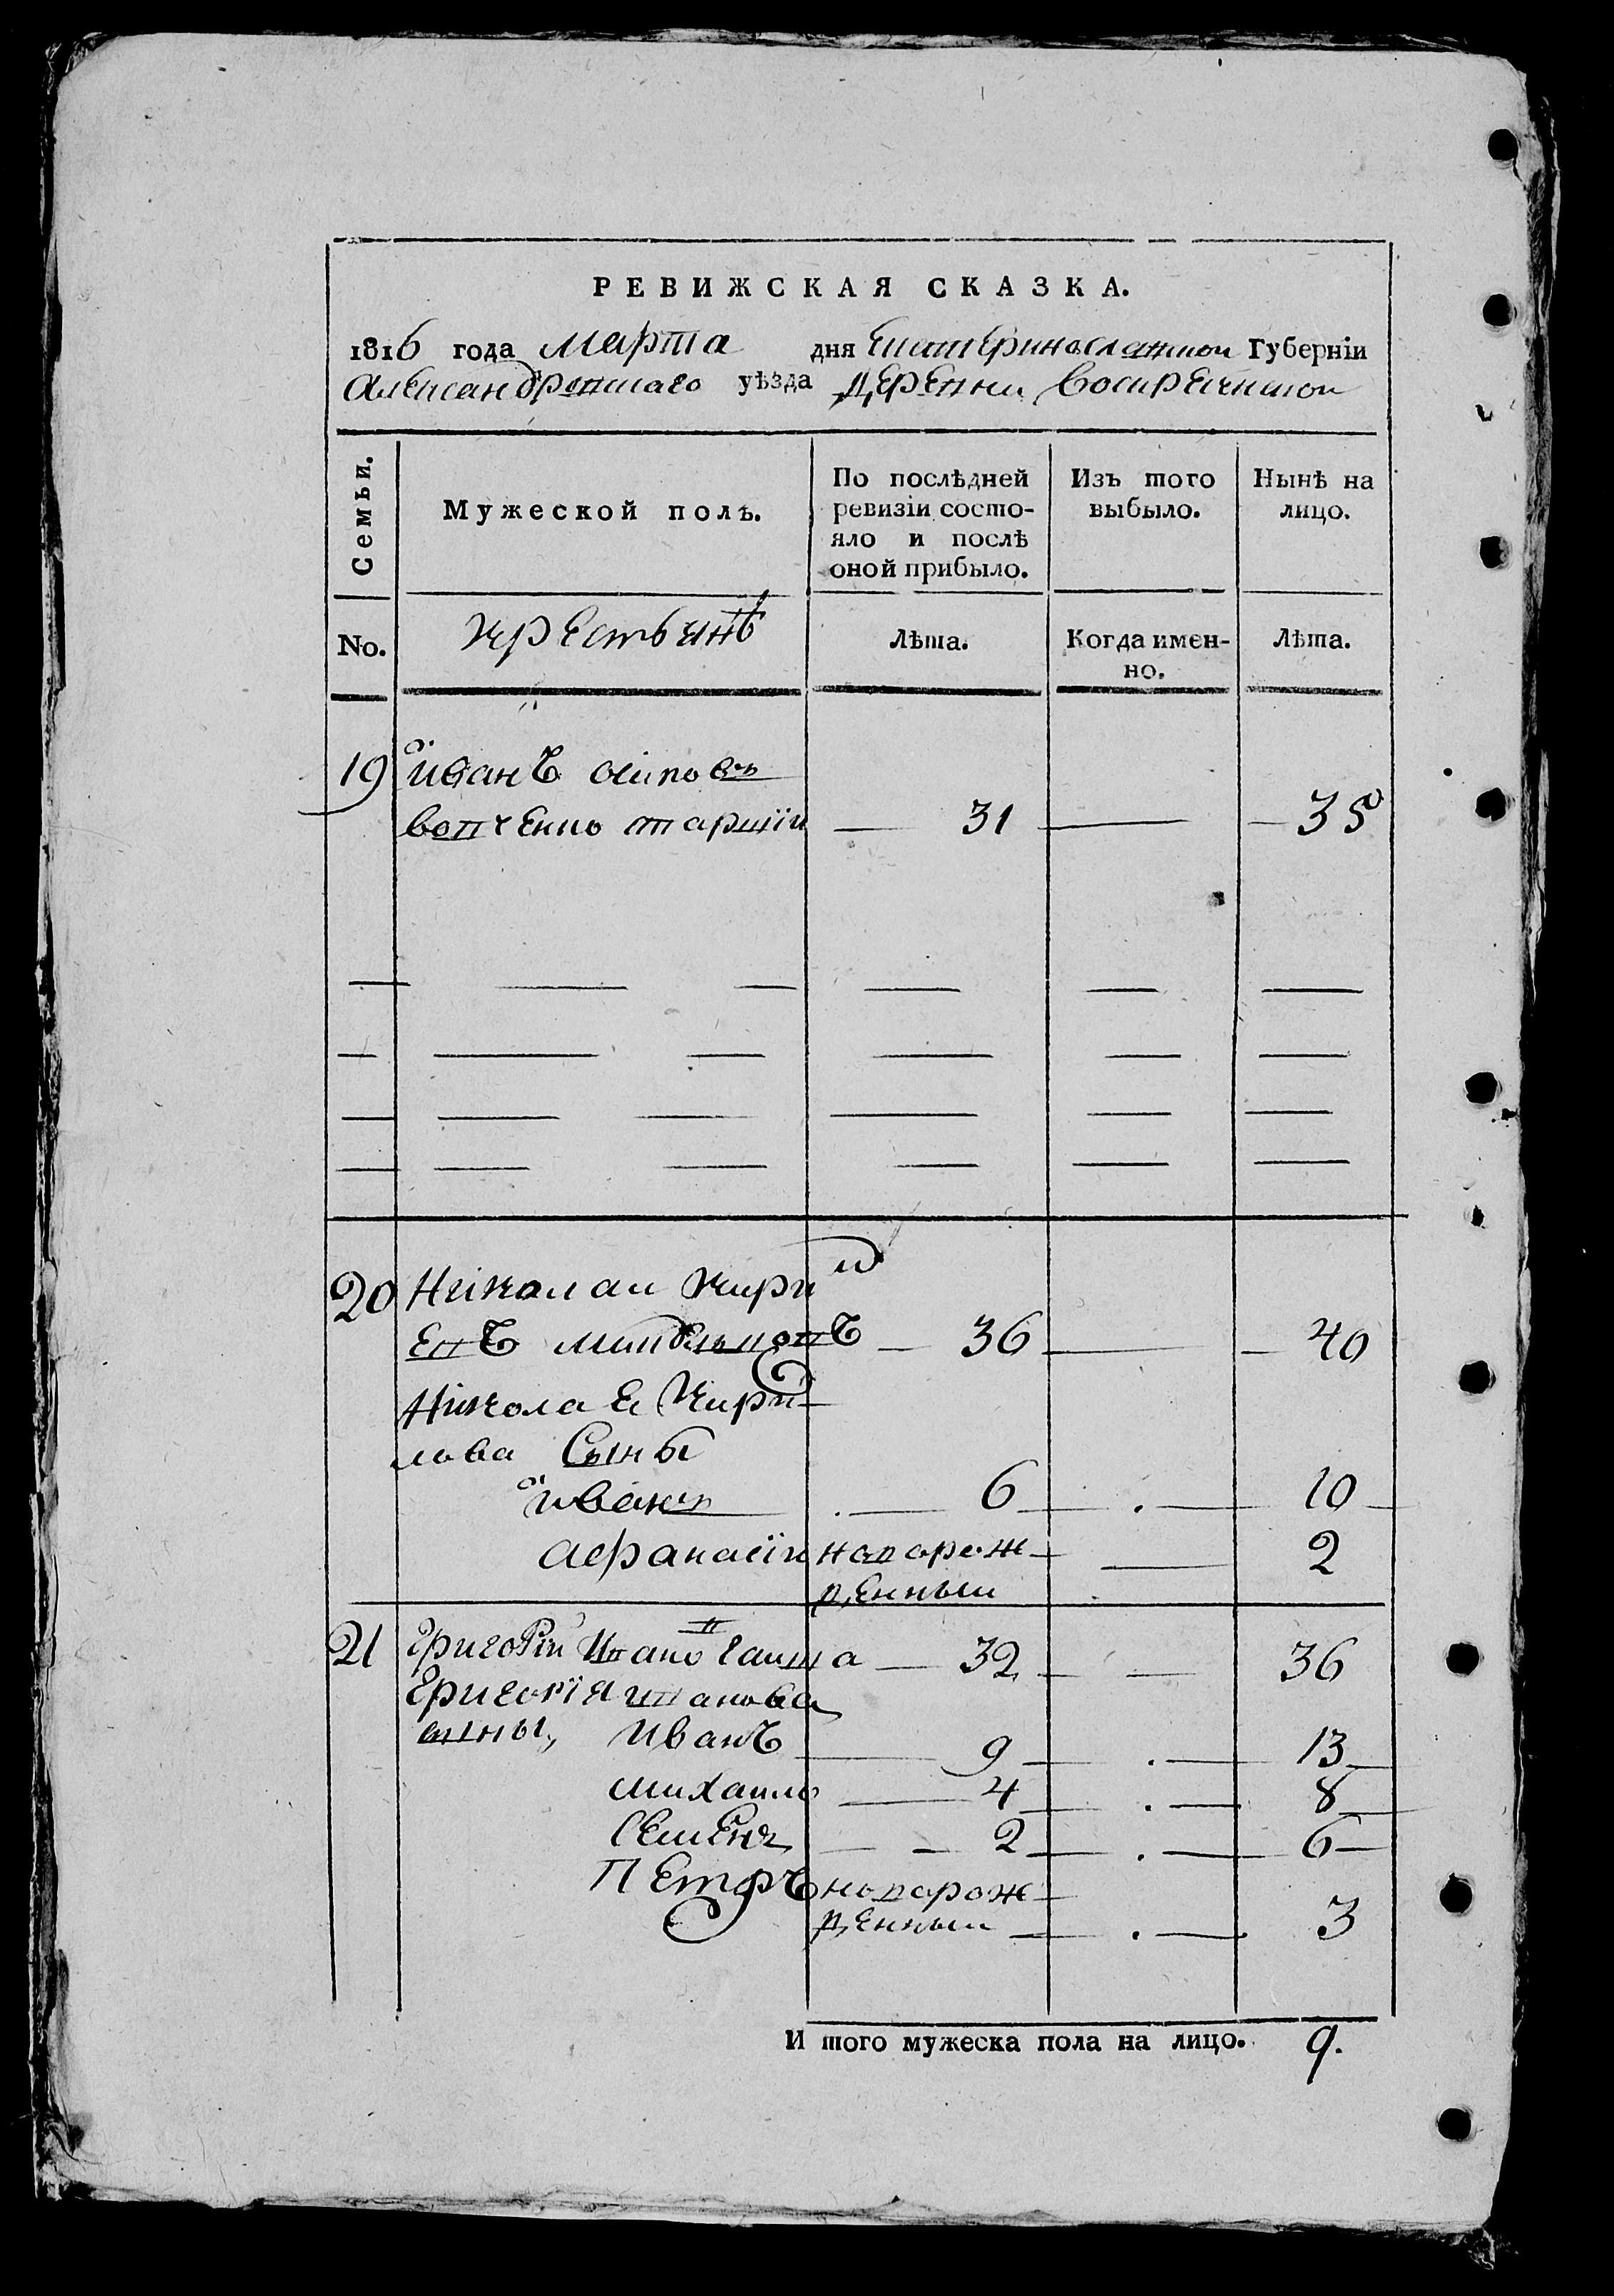 РЕВИЖСКАЯ СКАЗКА.
1816 года Марта дня Екатеринославской Губерніи
Александровскаго уѣзда Деревни
Семьи.
Мужеской полъ.
По послѣдней ревизіи состо-
яло и послѣ
оной прибыло.
Изъ того
выбыло.
Нынѣ на
лицо.
No.
Крестьянъ
Лѣта.
Когда имен-
но.
Лѣта.
19 Иванъ Осиповъ
Вовченко старшїи 31 35
20 Николаи Кирил
евъ 36 40
Николае Кири
лова Сыны
Иванъ 6 10
Афанасїи новорож
денныи 2
21 Григорїи Ивано 32 36
Григорїя Иванова
сыны, Иванъ 9 13
Михаило 4 8
Семенъ 2 6
Петръ новорож
денныи 3
И того мужеска пола на лицо. 9.